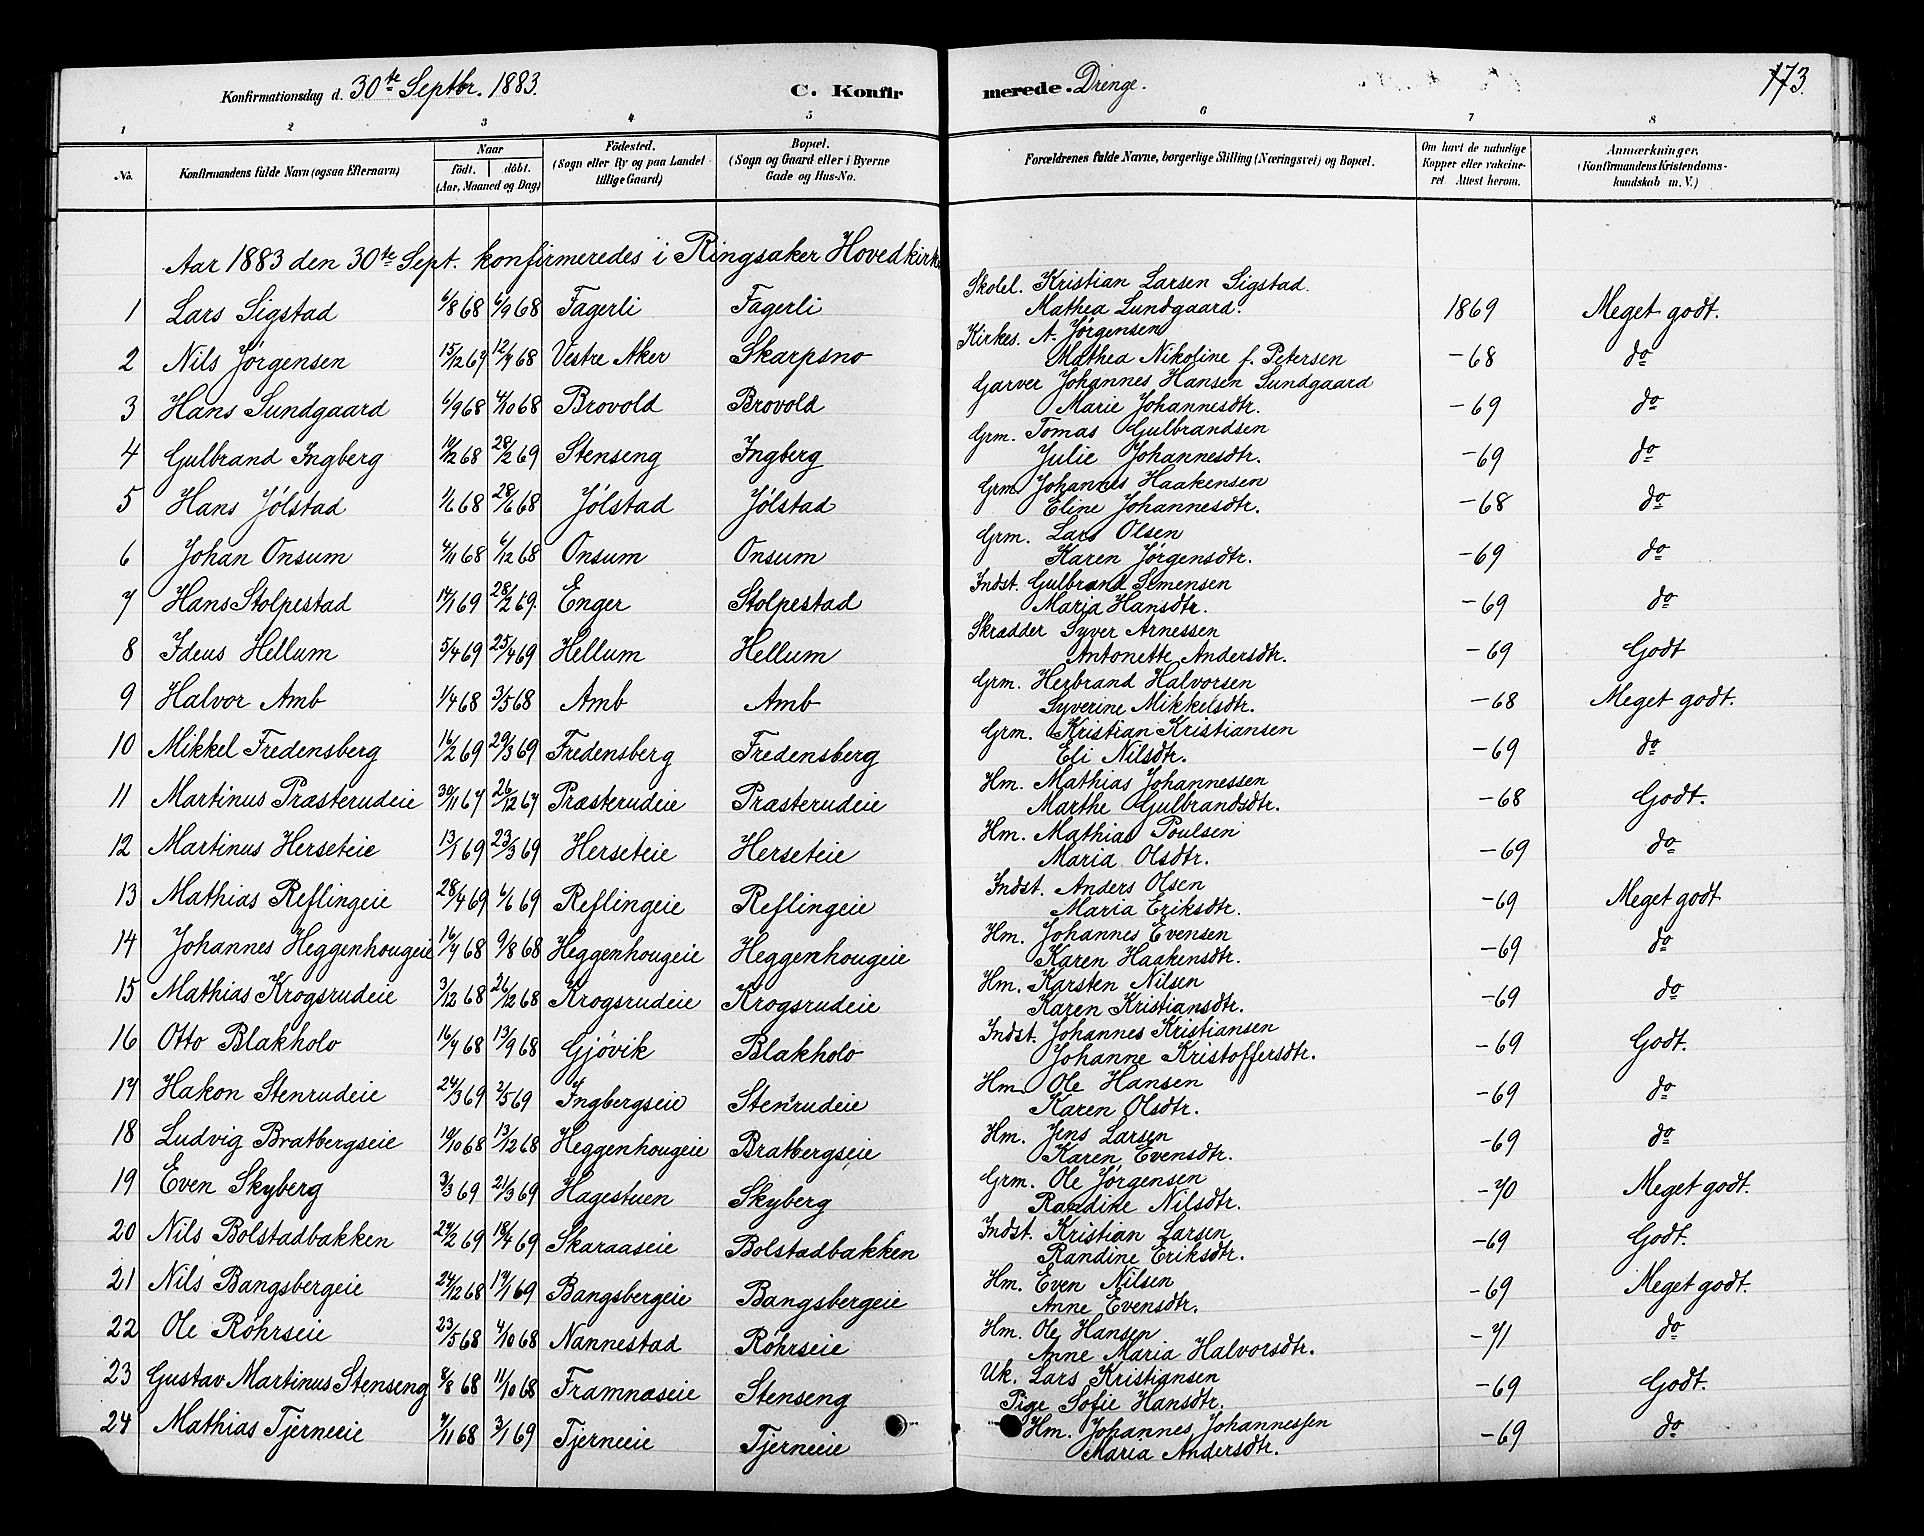 Konfirmationsdag d. 30te Septbr. 1883. C. Konfir merede. Drenge. 173.
1 2 3 4 5 6 7 8
No. Konfirmandens fulde Navn (ogsaa Efternavn) Naar født. døbt. (Aar, Maaned og Dag) Fødested. (Sogn eller By og paa Landet tillige Gaard) Bopæl. (Sogn og Gaard eller i Byerne Gade og Hus-No. Forældrenes fulde Navne, borgerlige Stilling (Næringsvei) og Bopæl. Om havt de naturlige Kopper eller vakcineret Attest herom. Anmærkninger. (Konfirmandens Kristendomskundskab m. V.)
Aar 1883 den 30te Sept. konfirmeredes i Ringsaker Hovedkirke
1 Lars Sigstad 6/8 68 6/9 68 Fagerli Fagerli Skolel. Kristian Larsen Sigstad. Mathea Lundgaard. 1869 Meget godt.
2 Nils Jørgensen 15/12 67 12/7 68 Vestre Aker Skarpsno Kirkes. A. Jørgensen Mathea Nikoline f. Petersen -68 do
3 Hans Sundgaard 6/9 68 4/10 68 Brovold Brovold Garver Johannes Hansen Sundgaard Marie Johannesdtr. -69 do
4 Gulbrand Ingberg 19/12 68 28/2 69 Stenseng Ingberg Grm. Tomas Gulbrandsen Julie Johannesdtr. -69 do
5 Hans Jølstad 1/6 68 28/6 68 Jølstad Jølstad Grm. Johannes Haakensen Eline Johannesdtr. -68 do
6 Johan Onsum 4/11 68 6/12 68 Onsum Onsum Grm. Lars Olsen Karen Jørgensdtr. -69 do
7 Hans Stolpestad 17/1 69 28/2 69. Enger Stolpestad Indst. Gulbrand Simensen Maria Hansdtr. -69 do
8 Ideus Hellum 5/4 69 25/4 69 Hellum Hellum Skrædder Syver Arnessen Antonette Andersdtr. -69 Godt
9 Halvor Amb 1/4 68 3/5 68 Amb Amb Grm. Herbrand Halvorsen Syverine Mikkelsdtr. -68 Meget godt.
10 Mikkel Fredensberg 16/2 69 29/3 69 Fredensberg Fredensberg Grm. Kristian Kristiansen Eli Nilsdtr. -69 do
11 Martinus Præsterudeie 30/11 67 26/12 67 Præsterudeie Præsterudeie Hm. Mathias Johannessen Marthe Gulbrandsdtr. -68 Godt.
12 Martinus Herseteie 13/1 69 23/3 69 Herseteie Herseteie Hm. Mathias Poulsen Maria Olsdtr. -69 do
13 Mathias Reflingeie 28/4 69 6/6 69 Reflingeie Reflingeie Indst. Anders Olsen Maria Eriksdtr. -69 Meget godt
14 Johannes Heggenhougeie 16/7 68 9/8 68 Heggenhougeie Heggenhougeie Hm. Johannes Evensen Karen Haakensdtr. -69 do
15 Mathias Krogsrudeie 3/12 68 26/12 68 Krogsrudeie Krogsrudeie Hm. Karsten Nilsen Karen Kristiansdtr. -69 do
16 Otto Blakholo 16/7 68 13/9 68 Gjøvik Blakholo Indst. Johannes Kristiansen Johanne Kristoffersdtr. -69 Godt.
17 Hakon Stenrudeie 24/3 69 2/5 69 Ingbergseie Stenrudeie Hm. Ole Hansen Karen Olsdtr. -69 do
18 Ludvig Bratbergseie 19/10 68 13/12 68 Heggenhougeie Bratbergseie Hm. Jens Larsen Karen Evensdtr. -69 do
19 Even Skyberg 3/3 69 21/3 69 Hagestuen Skyberg Grm. Ole Jørgensen Randine Nilsdtr. -70 Meget godt.
20 Nils Bolstadbakken 24/2 69 18/4 69 Skaraaseie Bolstadbakken Indst. Kristian Larsen Randine Eriksdtr. -69 Godt.
21 Nils Bangsbergeie 24/12 68 17/1 69 Bangsbergeie Bangsbergeie Hm. Even Nilsen Anne Evensdtr. -69 Meget godt.
22 Ole Røhrseie 23/5 68 4/10 68 Nannestad Røhrseie Hm. Ole Hansen Anne Maria Halvorsdtr. -71 do
23 Gustav Martinus Stenseng 8/8 68 11/10 68 Framnæseie Stenseng Uk. Lars Kristiansen Pige Sofie Hansdtr. -69 Godt.
24 Mathias Tjerneeie 7/11 68 3/1 69 Tjerneeie Tjerneeie Hm. Johannes Johannessen Maria Andersdtr. -69 do